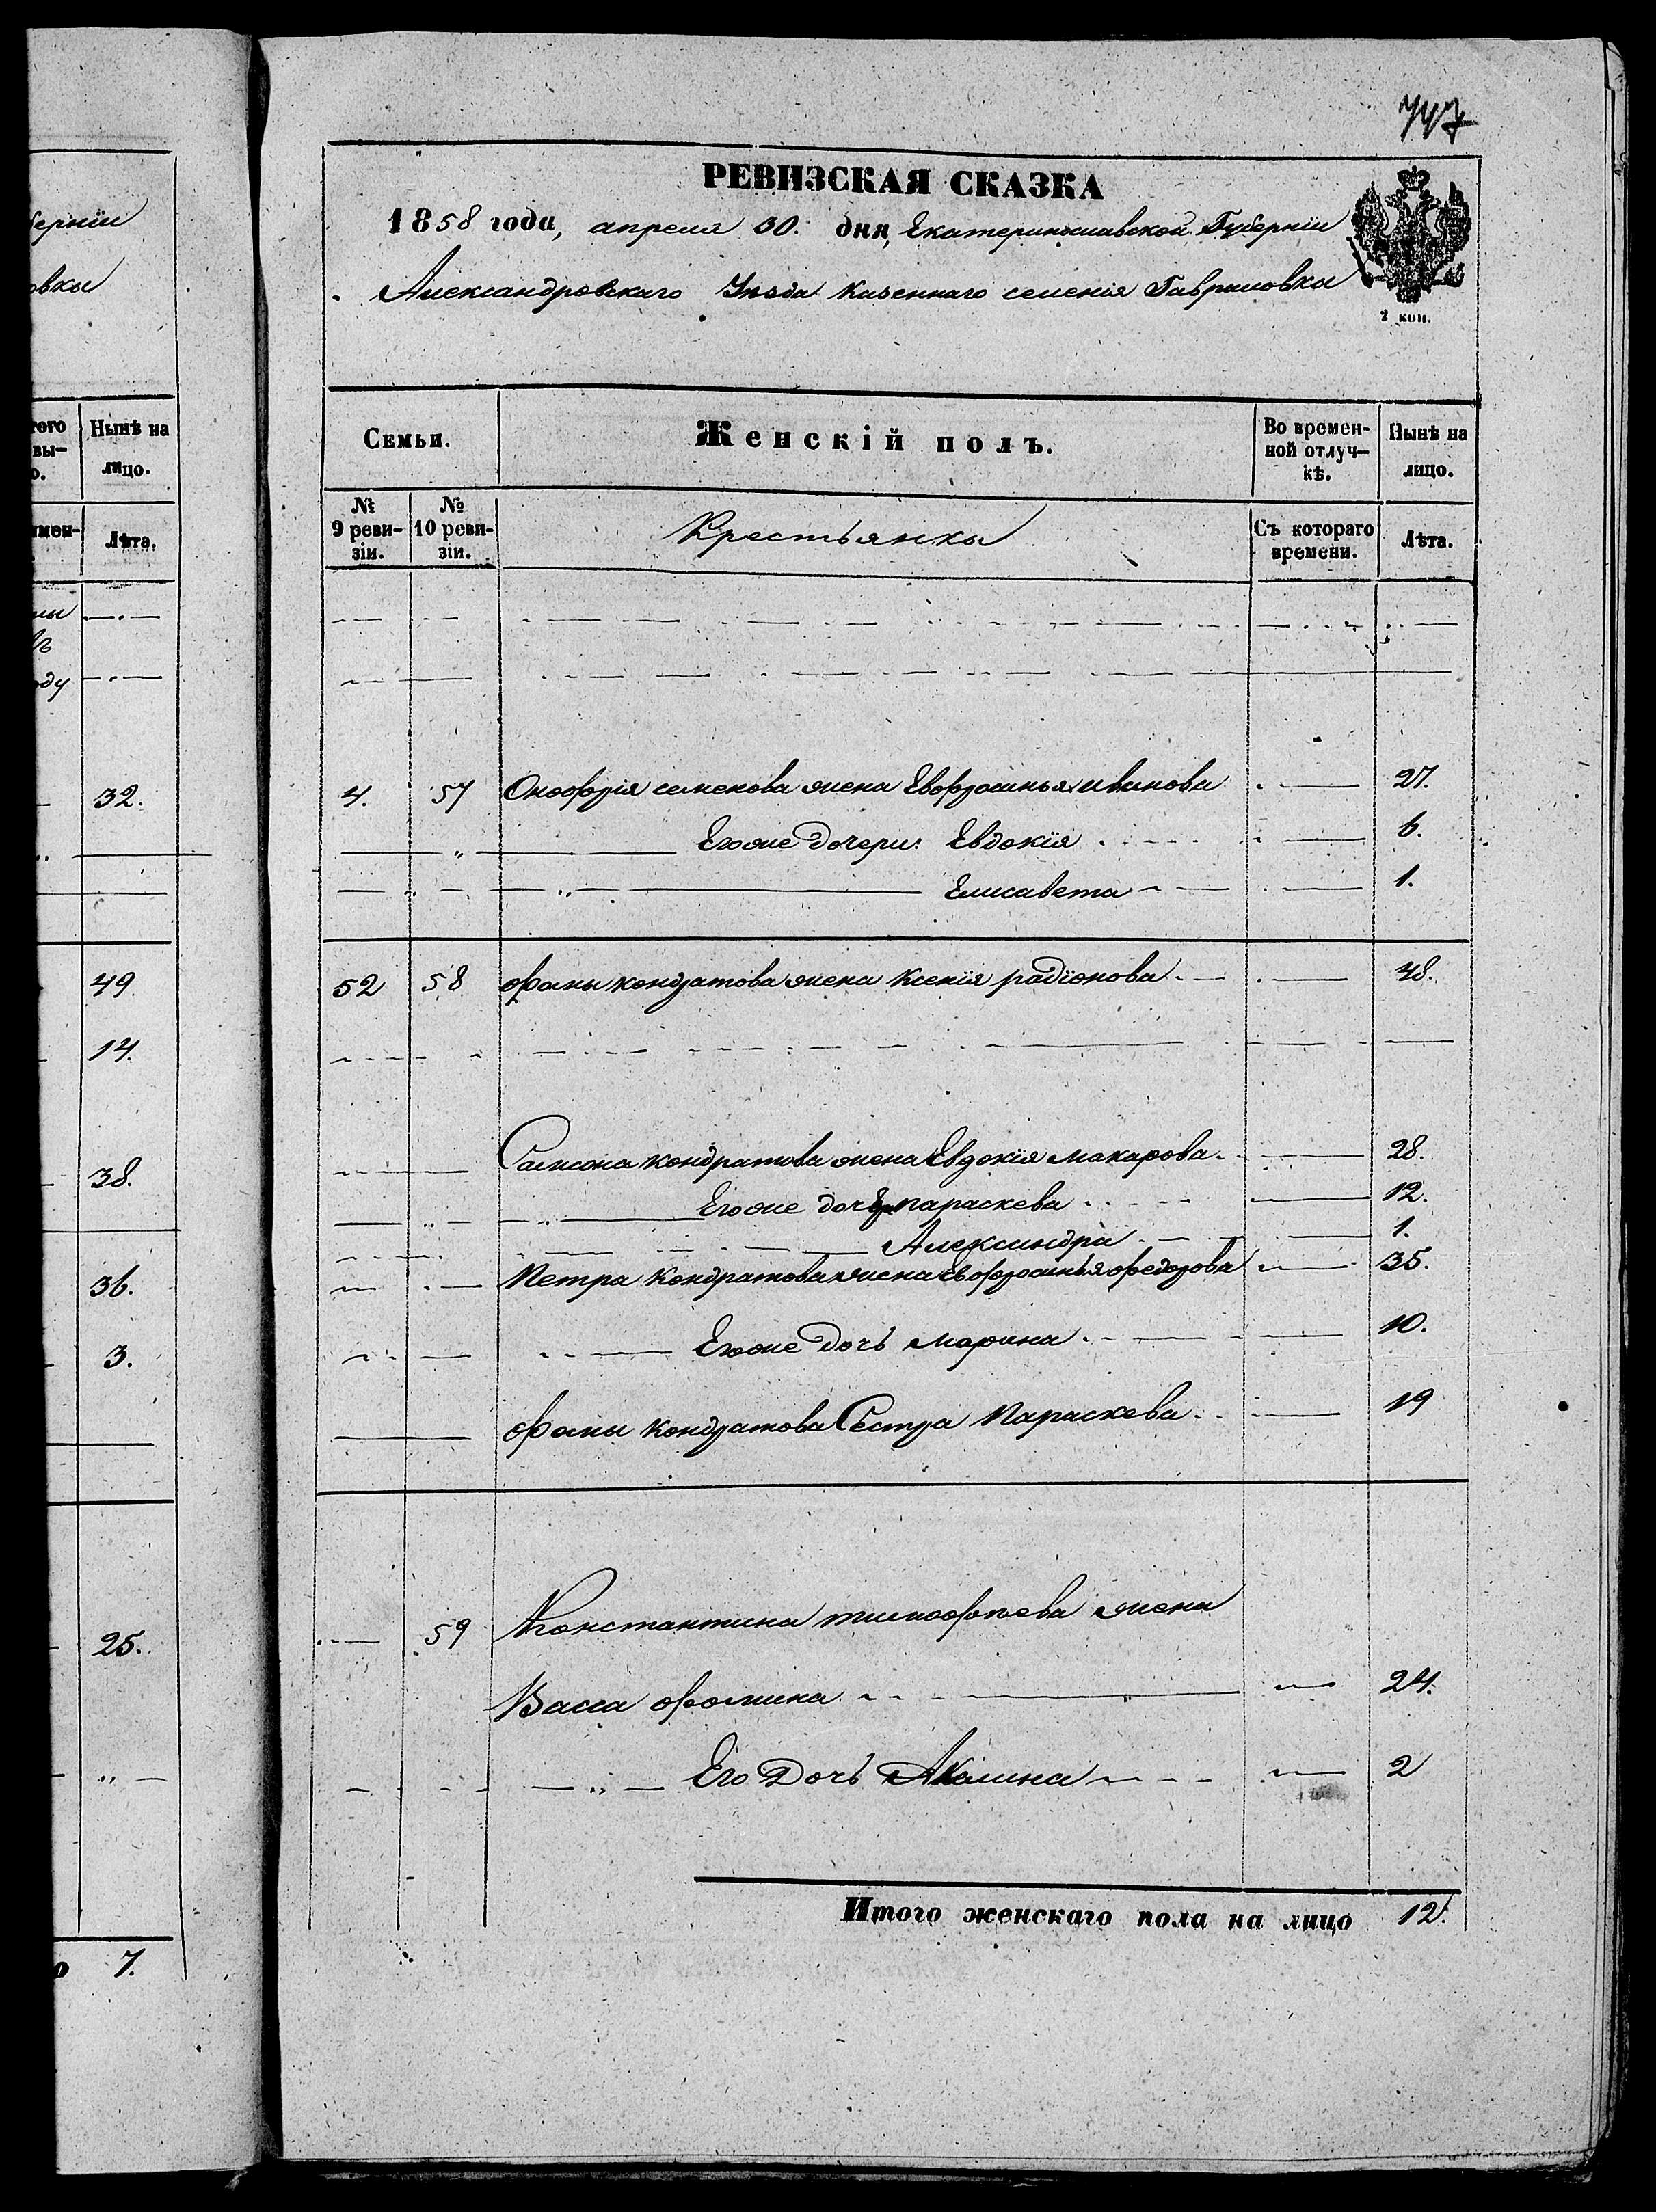 берніи
овки
того
вы-
о.
Нынѣ на
лицо.
Лѣта.
оду
32.
49.
14.
38.
36.
3.
25.
о 7.
747
РЕВИЗСКАЯ СКАЗКА
1858 года, апреля 30. дня, Екатеринославской Губерніи
Александровскаго Уѣзда казеннаго селенія Гавриловки
2 коп.
Семьи.
Женскій полъ.
Во времен-
ной отлуч-
кѣ.
Нынѣ на
лицо.
№
9 реви-
зіи.
№
10 реви-
зіи.
Крестьянки
Съ котораго
времени.
Лѣта.
4. 57 Онофрія семенова жена Евфросинья иванова 27.
Егоже дочери: Евдокія 6.
Елисавета 1.
52 58 фомы кондратова жена Ксенія радіонова 48.
Самсона кондратова жена Евдокія макарова 28.
Егоже дочери параскева 12.
Александра 1.
Петра Кондратова жена Евфросинья федорова 35.
Егоже Дочь марина 10.
фомы кондратова Сестра Параскева 19
59 Константина тимофѣева жена
Васса фомина 24.
Его Дочь Акилина 2
Итого женскаго пола на лицо 12.